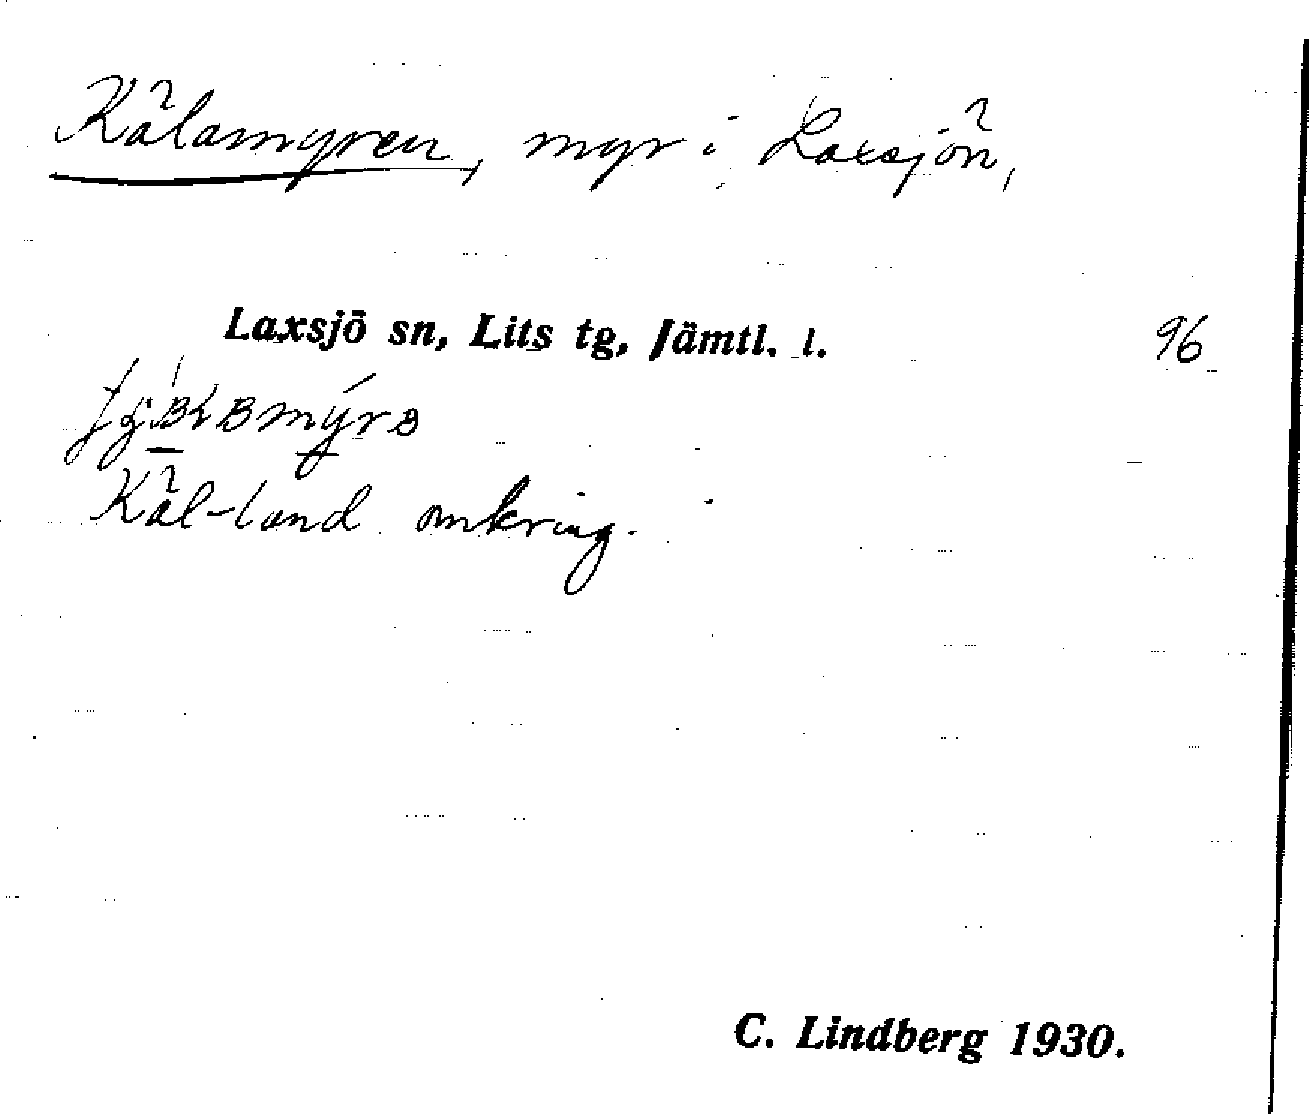 Kälamyren, myr i Laxsjön,
Laxsjö sn, Lits tg, Jämtl. l.
96
Käl-land omkring.
C. Lindberg 1930.